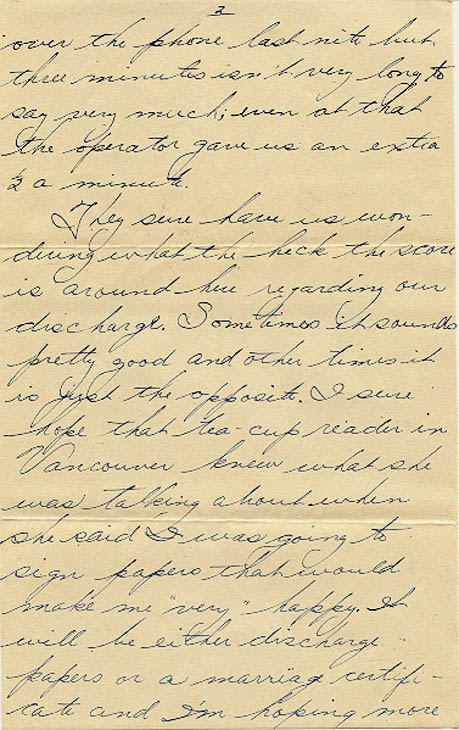 2
over the phone last nite but
three minutes isn't very long to
say very much; even at that
the operator gave us an extra
½ a minute.
They sure have us won-
dering what the heck the score
is around here regarding our
discharge. Sometimes it sounds
pretty good and other times it
is just the opposite. I sure
hope that tea-cup reader in
Vancouver knew what she
was talking about when
she said I was going to
sign papers that would
make me "very" happy. It
will be either discharge
papers or a marriag certifi-
cate and I'm hoping more